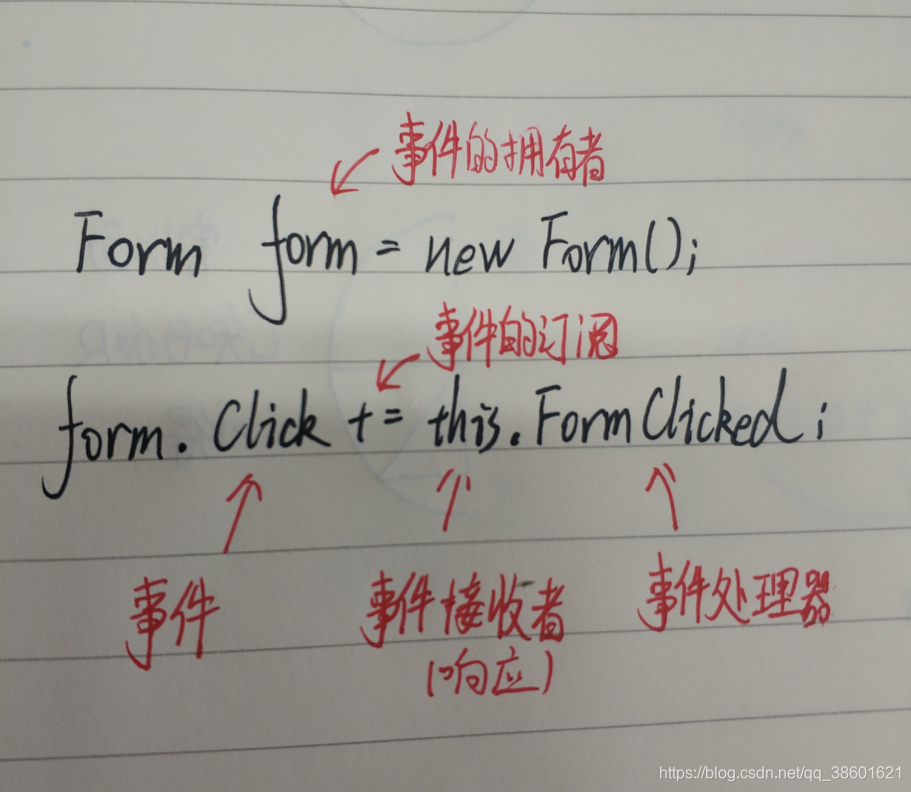 事件的拥有者
Form form = new Form();
事件的订阅
form. Click += this. FormClicked;
事件 事件接收者 事件处理器
(响应)
https://blog.csdn.net/qq_38601621